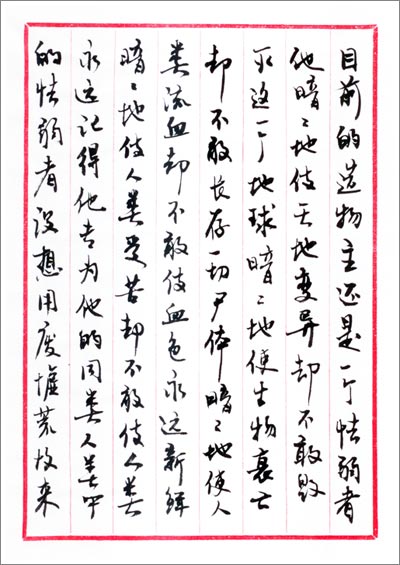 目前的造物主还是一个怯弱者
他暗〻地使天地变异却不敢毁
灭这一个地球暗〻地使生物衰亡
却不敢长存一切尸体暗〻地使人
类流血却不敢使血色永远新鲜
暗〻地使人类受苦却不敢使人类
永远记得他专为他的同类人类中
的怯弱者设想用废墟荒坟来